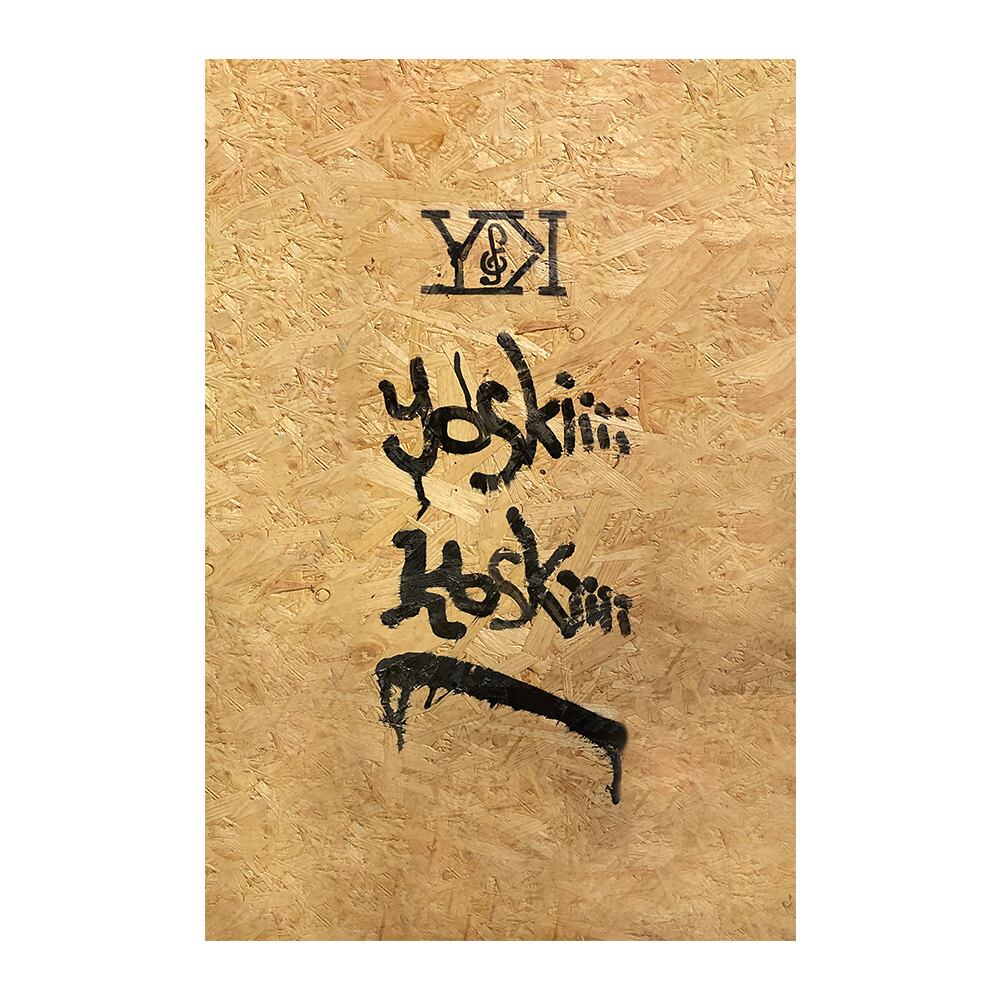 YK
Yoskiiii
Koskiiii